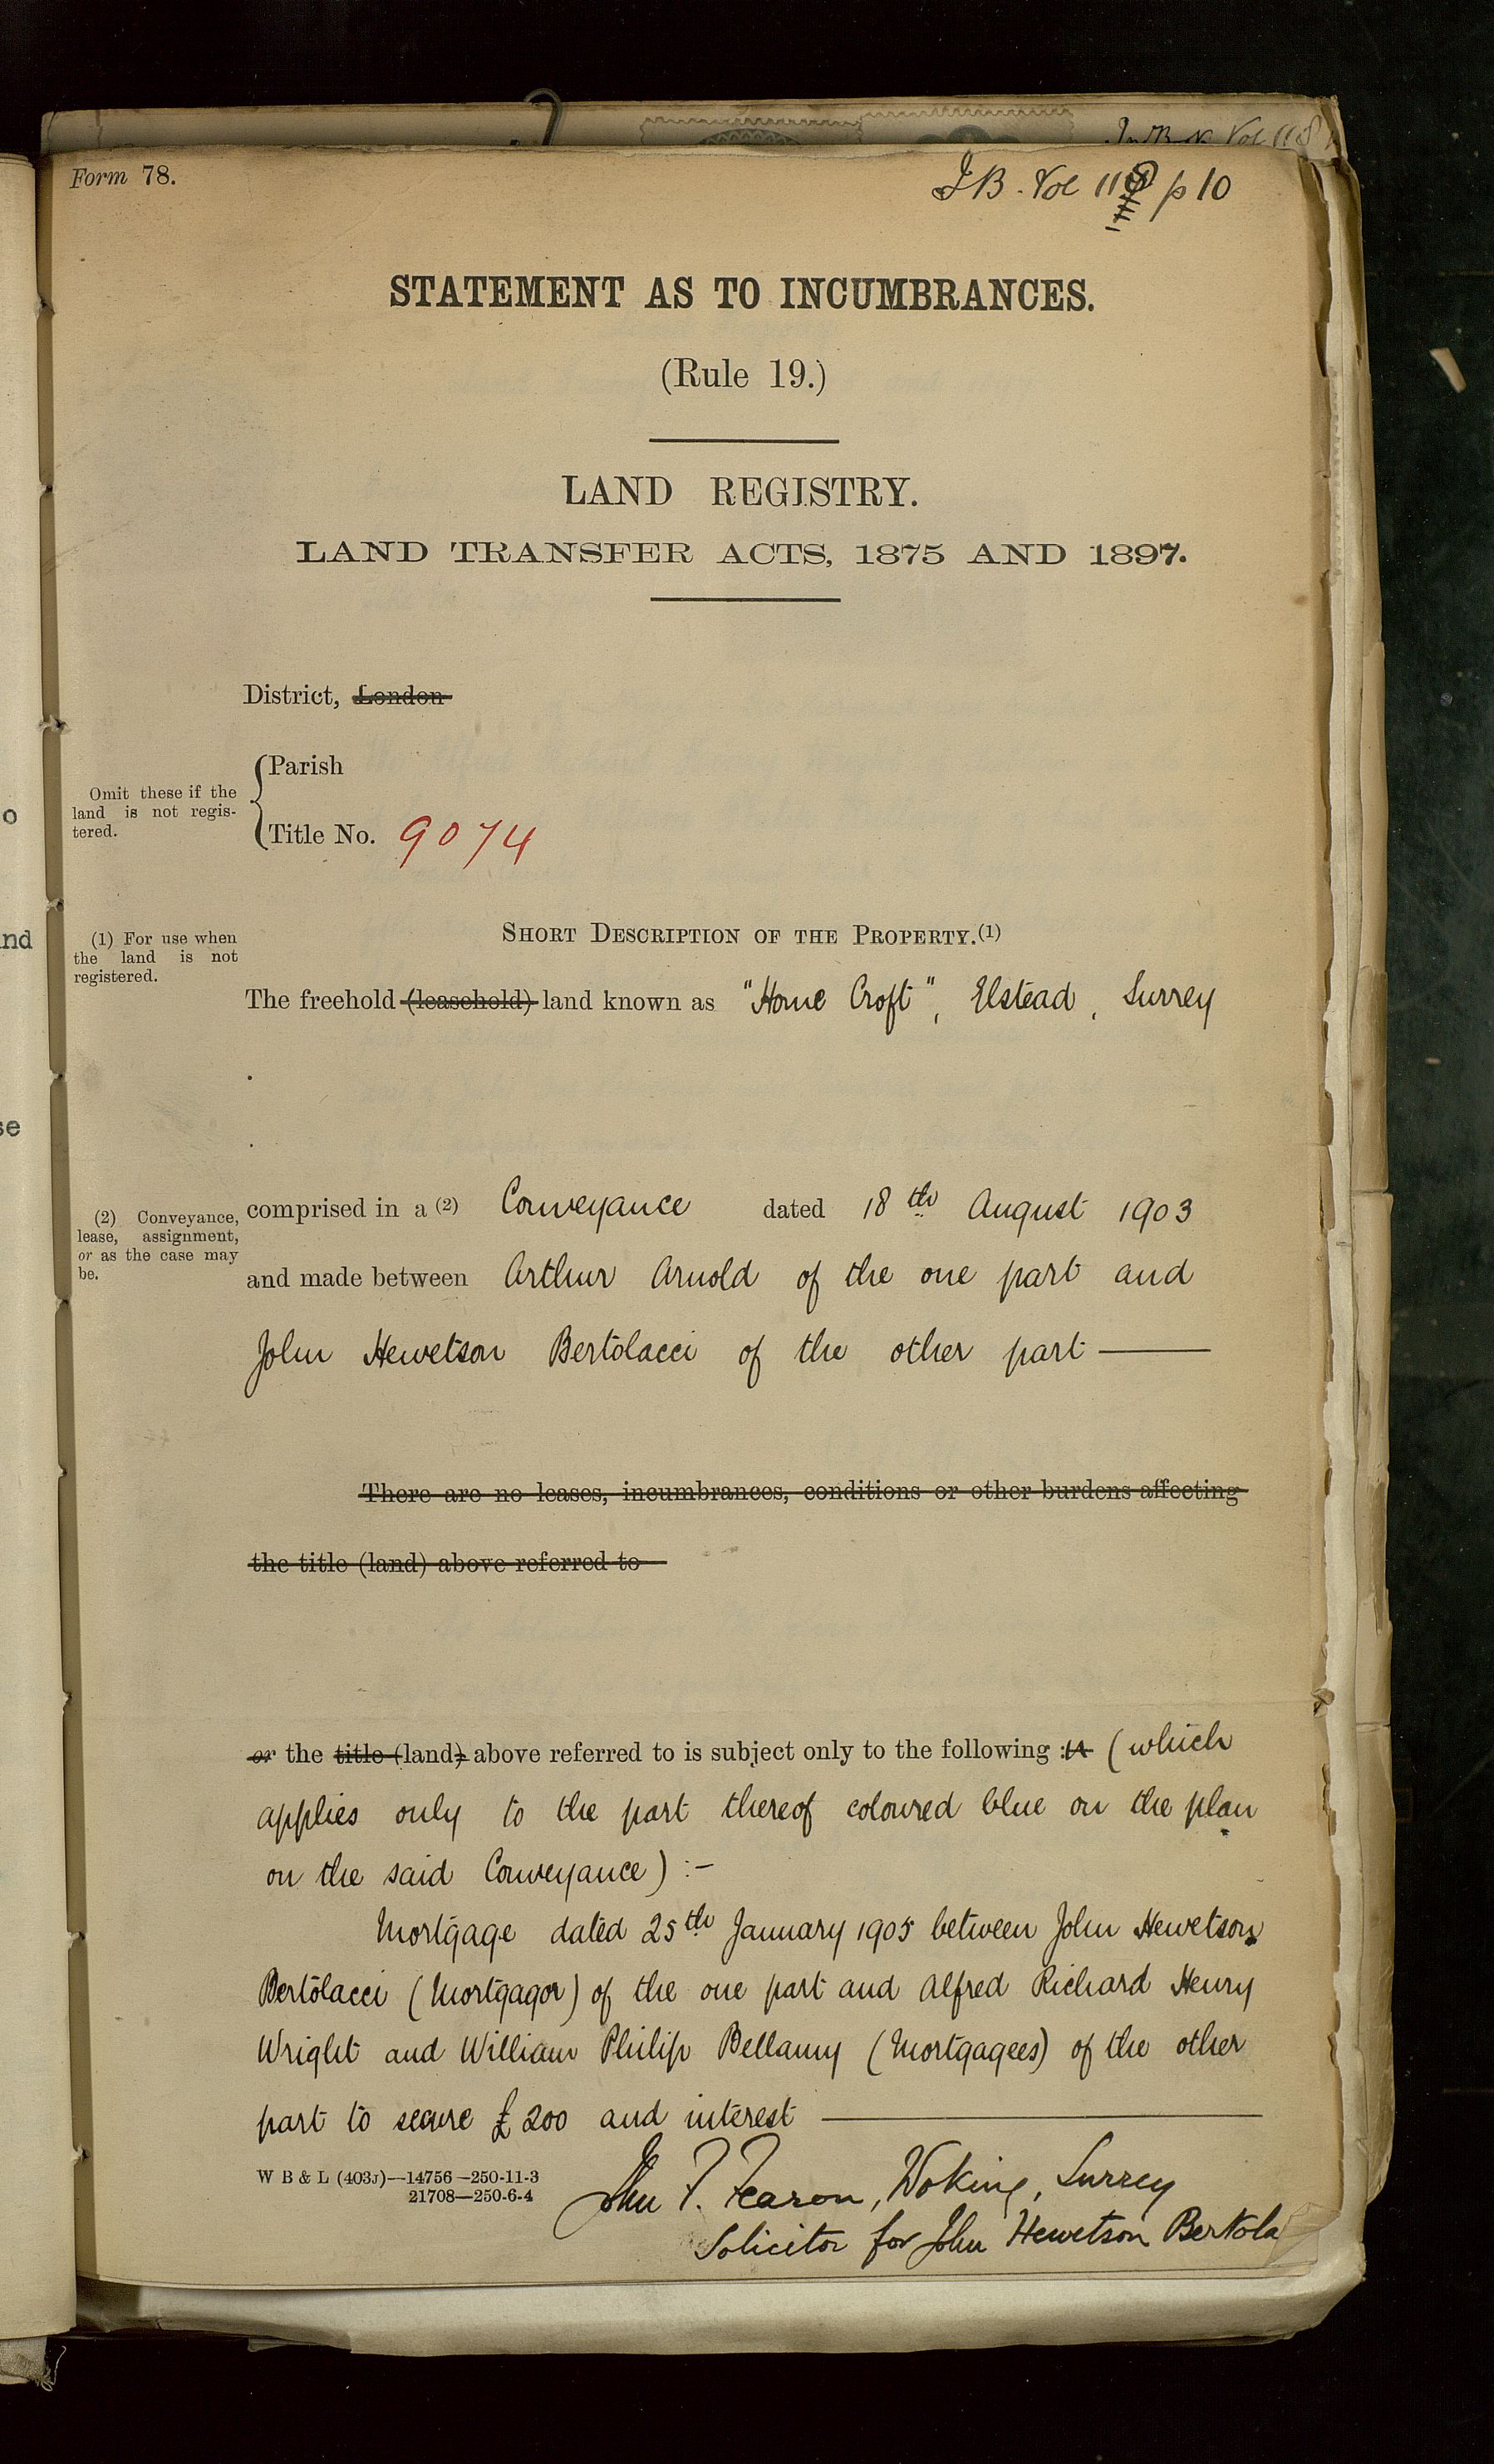 Form 78.
I B. Vol 118 p 10
STATEMENT AS TO INCUMBRANCES.
(Rule 19.)
LAND REGISTRY.
LAND TRANSFER ACTS, 1875 AND 1897.
District, London
Parish
Omit these if the
land is not regis-
tered.
Title No. 9074
(1) For use when
the land is not
registered.
SHORT DESCRIPTION OF THE PROPERTY.(1)
The freehold (leasehold) land known as "Home Croft", Elstead, Surrey
(2) Conveyance,
lease, assignment,
or as the case may
be.
comprised in a (2) Conveyance dated 18th August 1903
and made between Arthur Arnold of the one part and
John Hewetson Bertolacci of the other part
There are no leases, incumbrances, conditions or other burdens affecting
the title (land) above referred to
or the title (land) above referred to is subject only to the following : (which
applies only to the part thereof coloured blue on the plan
on the said Conveyance) :-
Mortgage dated 25th January 1905 between John Hewetson
Bertolacci (Mortgagor) of the one part and Alfred Richard Henry
Wright and William Philip Bellamy (Mortgagees) of the other
part to secure £200 and interest
W B & L (403J)—14756—250-11-3
21708—250-6-4
John T. Fearon, Woking, Surrey
Solicitor for John Hewetson Bertola